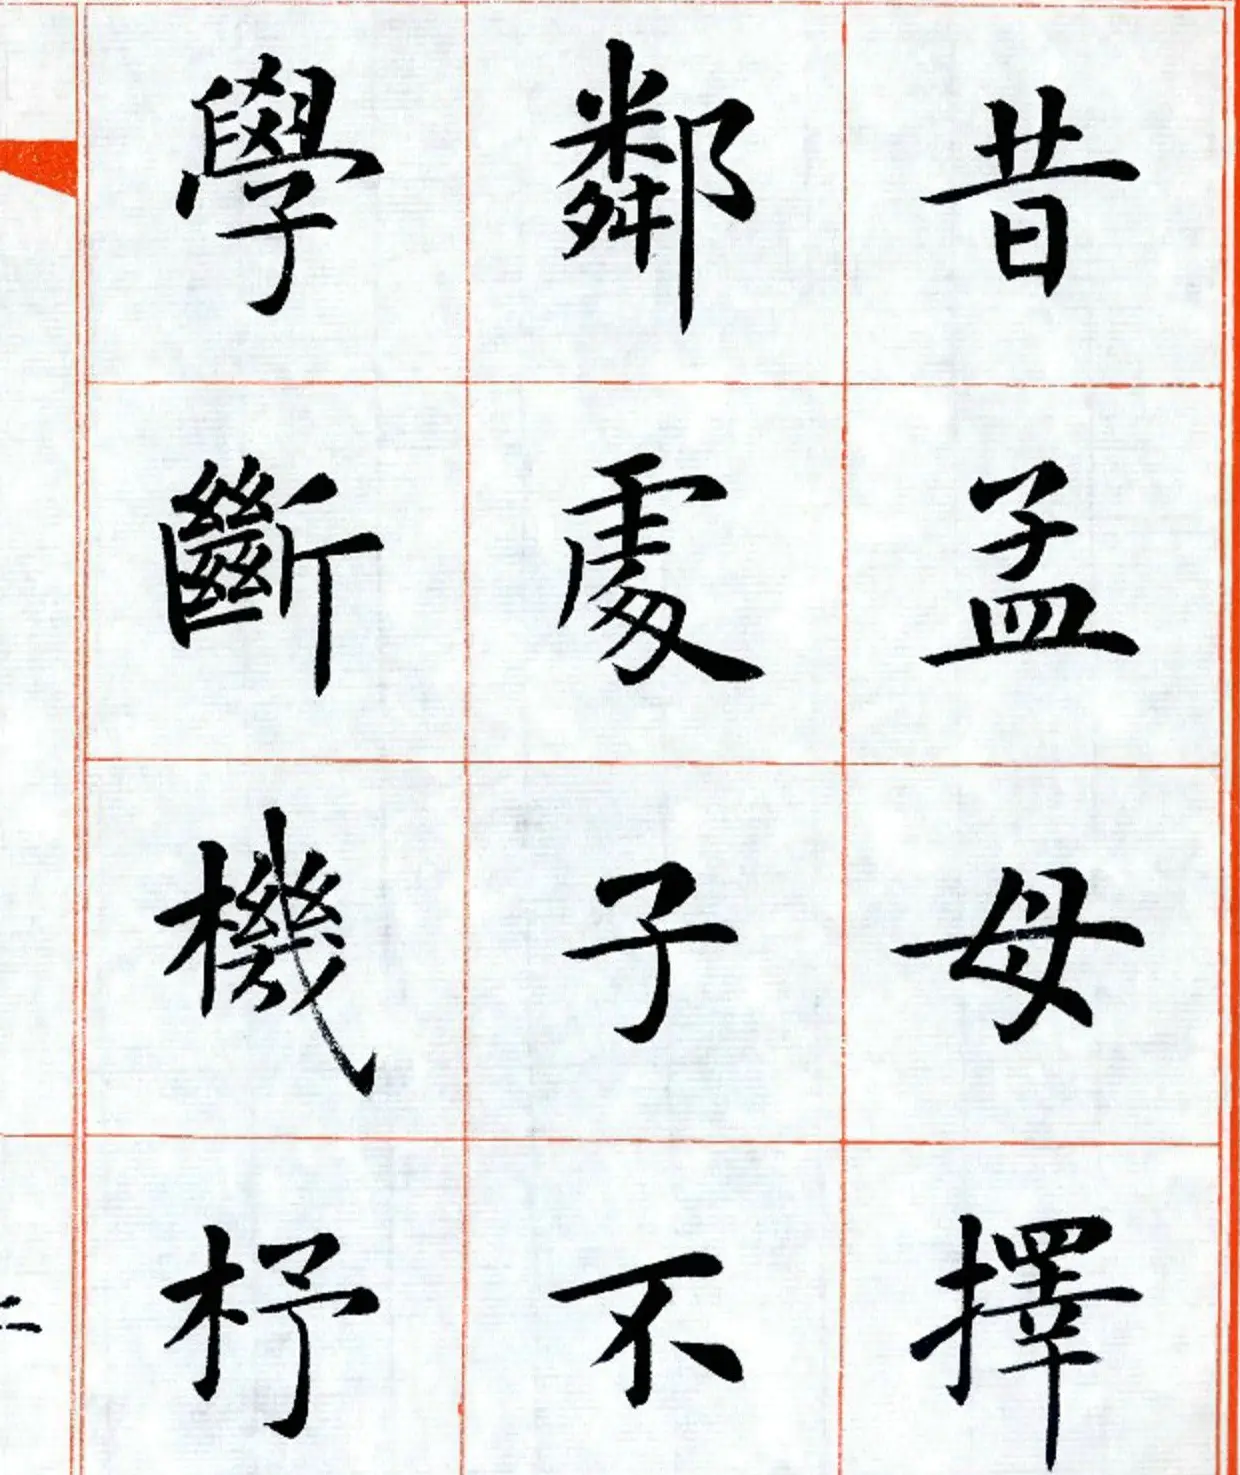 昔孟母擇
鄰處子不
學斷機杼
二